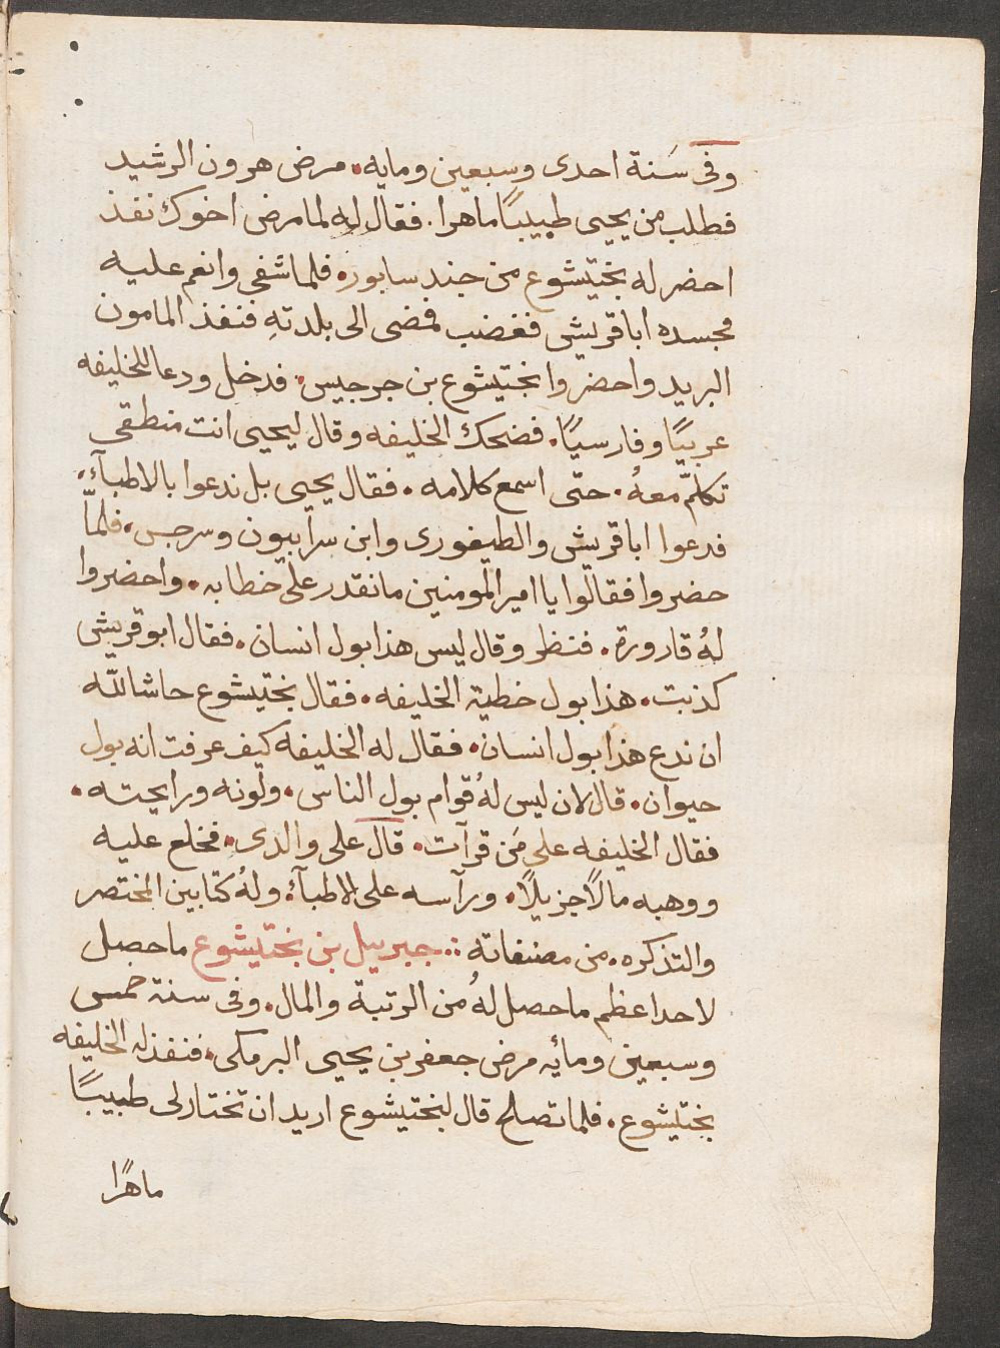 وفى سَنة احدى وسبعين ومايه. مرض هرون الرشيد
فطلب من يحيى طبيبًا ماهرا. فقال له لما مرض اخوك نفذ
احضر له بختيشوع من جند سابور. فلما شفى وانعم عليه
فحسده اباقريش فغضب فمضى الى بلدتهِ فنفذ المامون
البريد واحضروا بختيشوع بن جرجيس. فدخل ودعا للخليفه
عربيًا وفارسيًا. فضحك الخليفه وقال ليحيى انت منطقي
تكلّم معهُ. حتى اسمع كلامه. فقال يحيى بل ندعوا بالاطبآءِ.
فدعوا اباقريش والطيفورى وابن سرابيون وسرجس. فلمّا
حضروا فقالوا يا امير المومنين ما نقدر على خطابه. واحضروا
لهُ قارورة. فنظر وقال ليس هذا بول انسان. فقال ابوقريش
كذبت. هذا بول خطية الخليفه. فقال بختيشوع حاشا لله
ان ندع هذا بول انسان. فقال له الخليفه كيف عرفت انه بول
حيوان. قال لان ليس لهُ قوام بول الناس. ولونه ورايحته.
فقال الخليفه على مَن قرآت. قال على والدى. فخلع عليه
ووهبه مالًا جزيلًا. ورآسه على الاطبآءِ. ولهُ كتابين المختصر
والتذكره. من مصنفاته ∴ جبرييل بن بختيشوع ما حصل
لاحد اعظم ما حصل لهُ من الرتبة والمال. وفى سنة خمس
وسبعين ومائه مرض جعفر بن يحيى البرمكى. فنفذ له الخليفه
بختيشوع. فلما تصلح قال لبختيشوع اريد ان تختار لى طبيبًا
ماهرًا